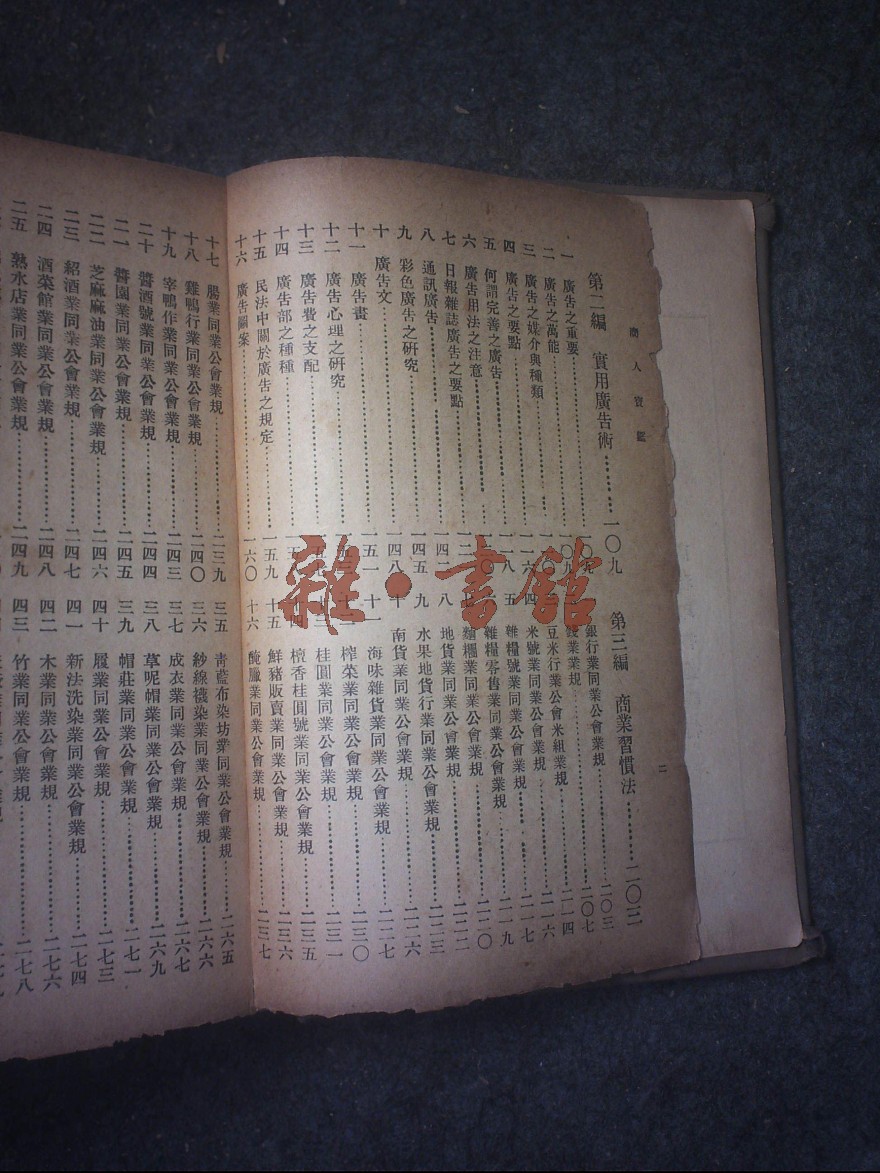 商人寶鑑
第二編　實用廣告術………一〇九
一　廣告之重要
二　廣告之萬能
三　廣告之媒介與種類
四　廣告之要點
五　何謂完善之廣告
六　廣告用法之注意
七　日報雜誌廣告之要點
八　通訊廣告………一四二
九　彩色廣告之研究………一四五
十　廣告文………一四八
十一　廣告畫………一五一
十二　廣告心理之研究
十三　廣告費之支配
十四　廣告部之種種
十五　民法中關於廣告之規定………一五九
十六　廣告圖案………一六〇
第三編　商業習慣法………二〇三
銀行業同業公會業規………二〇三
錢業業規………二〇七
豆米行業公會米組業規………二一四
四　米號業同業公會業規………二一六
五　雜糧號業同業公會業規………二一七
雜糧零售業同業公會業規………二一九
麵糰業同業公會業規………二二〇
八　地貨業同業公會業規………二二二
九　水果地貨行業同業公會業規………二二三
十　南貨業同業公會業規………二二六
十一　海味雜貨業同業公會業規………二二七
榨菜業同業公會業規………二三〇
桂圓業同業公會業規………二三一
十四　檀香桂圓號業同業公會業規………二三五
十五　鮮豬販賣業同業公會業規………二三六
十六　醃臘業同業公會業規………二三七
二
十七　腸業同業公會業規………二三九
十八　雞鴨行業同業公會業規………二四〇
十九　宰鴨作業同業公會業規………二四三
二十　醬酒號業同業公會業規………二四四
二一　醬園業同業公會業規………二四五
二二　芝麻麻油業同業公會業規………二四六
二三　紹酒業同業公會業規………二四七
二四　酒菜館業同業公會業規………二四八
二五　熟水店業同業公會業規………二四九
三五　青藍布染坊業同業公會業規………二六五
三六　紗線襪染業同業公會業規………二六六
三七　成衣業同業公會業規………二六七
三八　草呢帽業同業公會業規………二六九
三九　帽莊業同業公會業規………二七一
四十　履業同業公會業規………二七三
四一　新法洗染業同業公會業規………二七四
四二　木業同業公會業規………二七六
四三　竹業同業公會業規………二七八
雜·書館